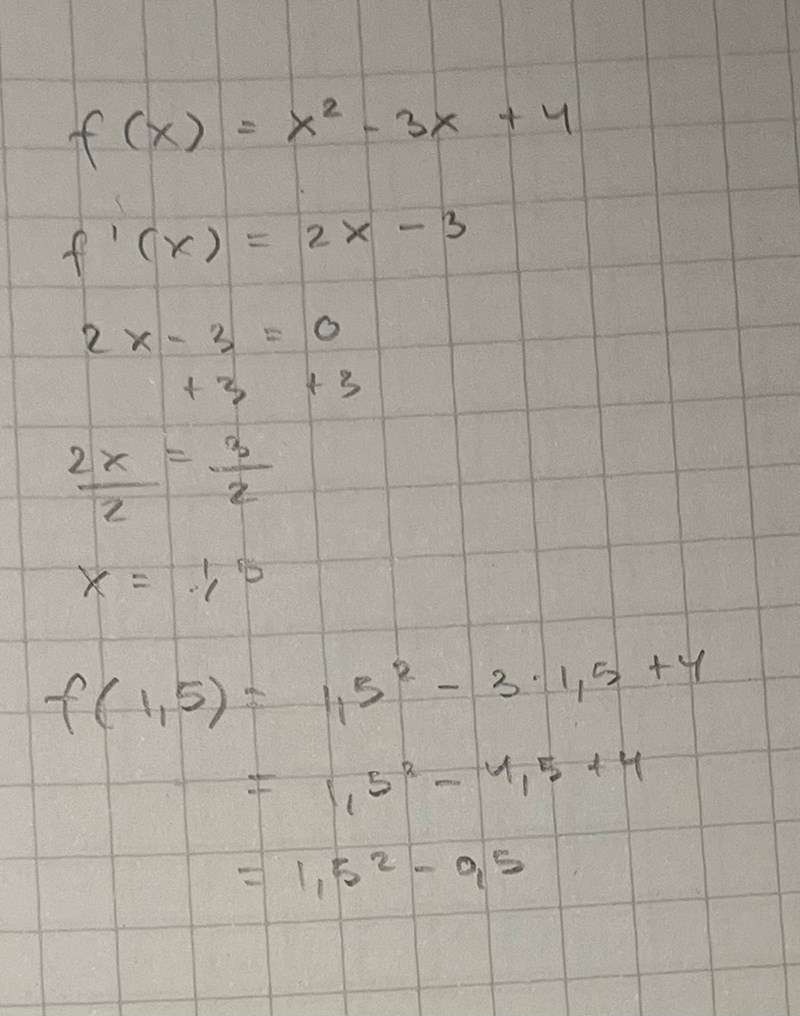 f(x) = x² - 3x + 4
f'(x) = 2x - 3
2x - 3 = 0
+3 +3
2x/2 = 3/2
x = 1,5
f(1,5) = 1,5² - 3·1,5 + 4
= 1,5² - 4,5 + 4
= 1,5² - 0,5